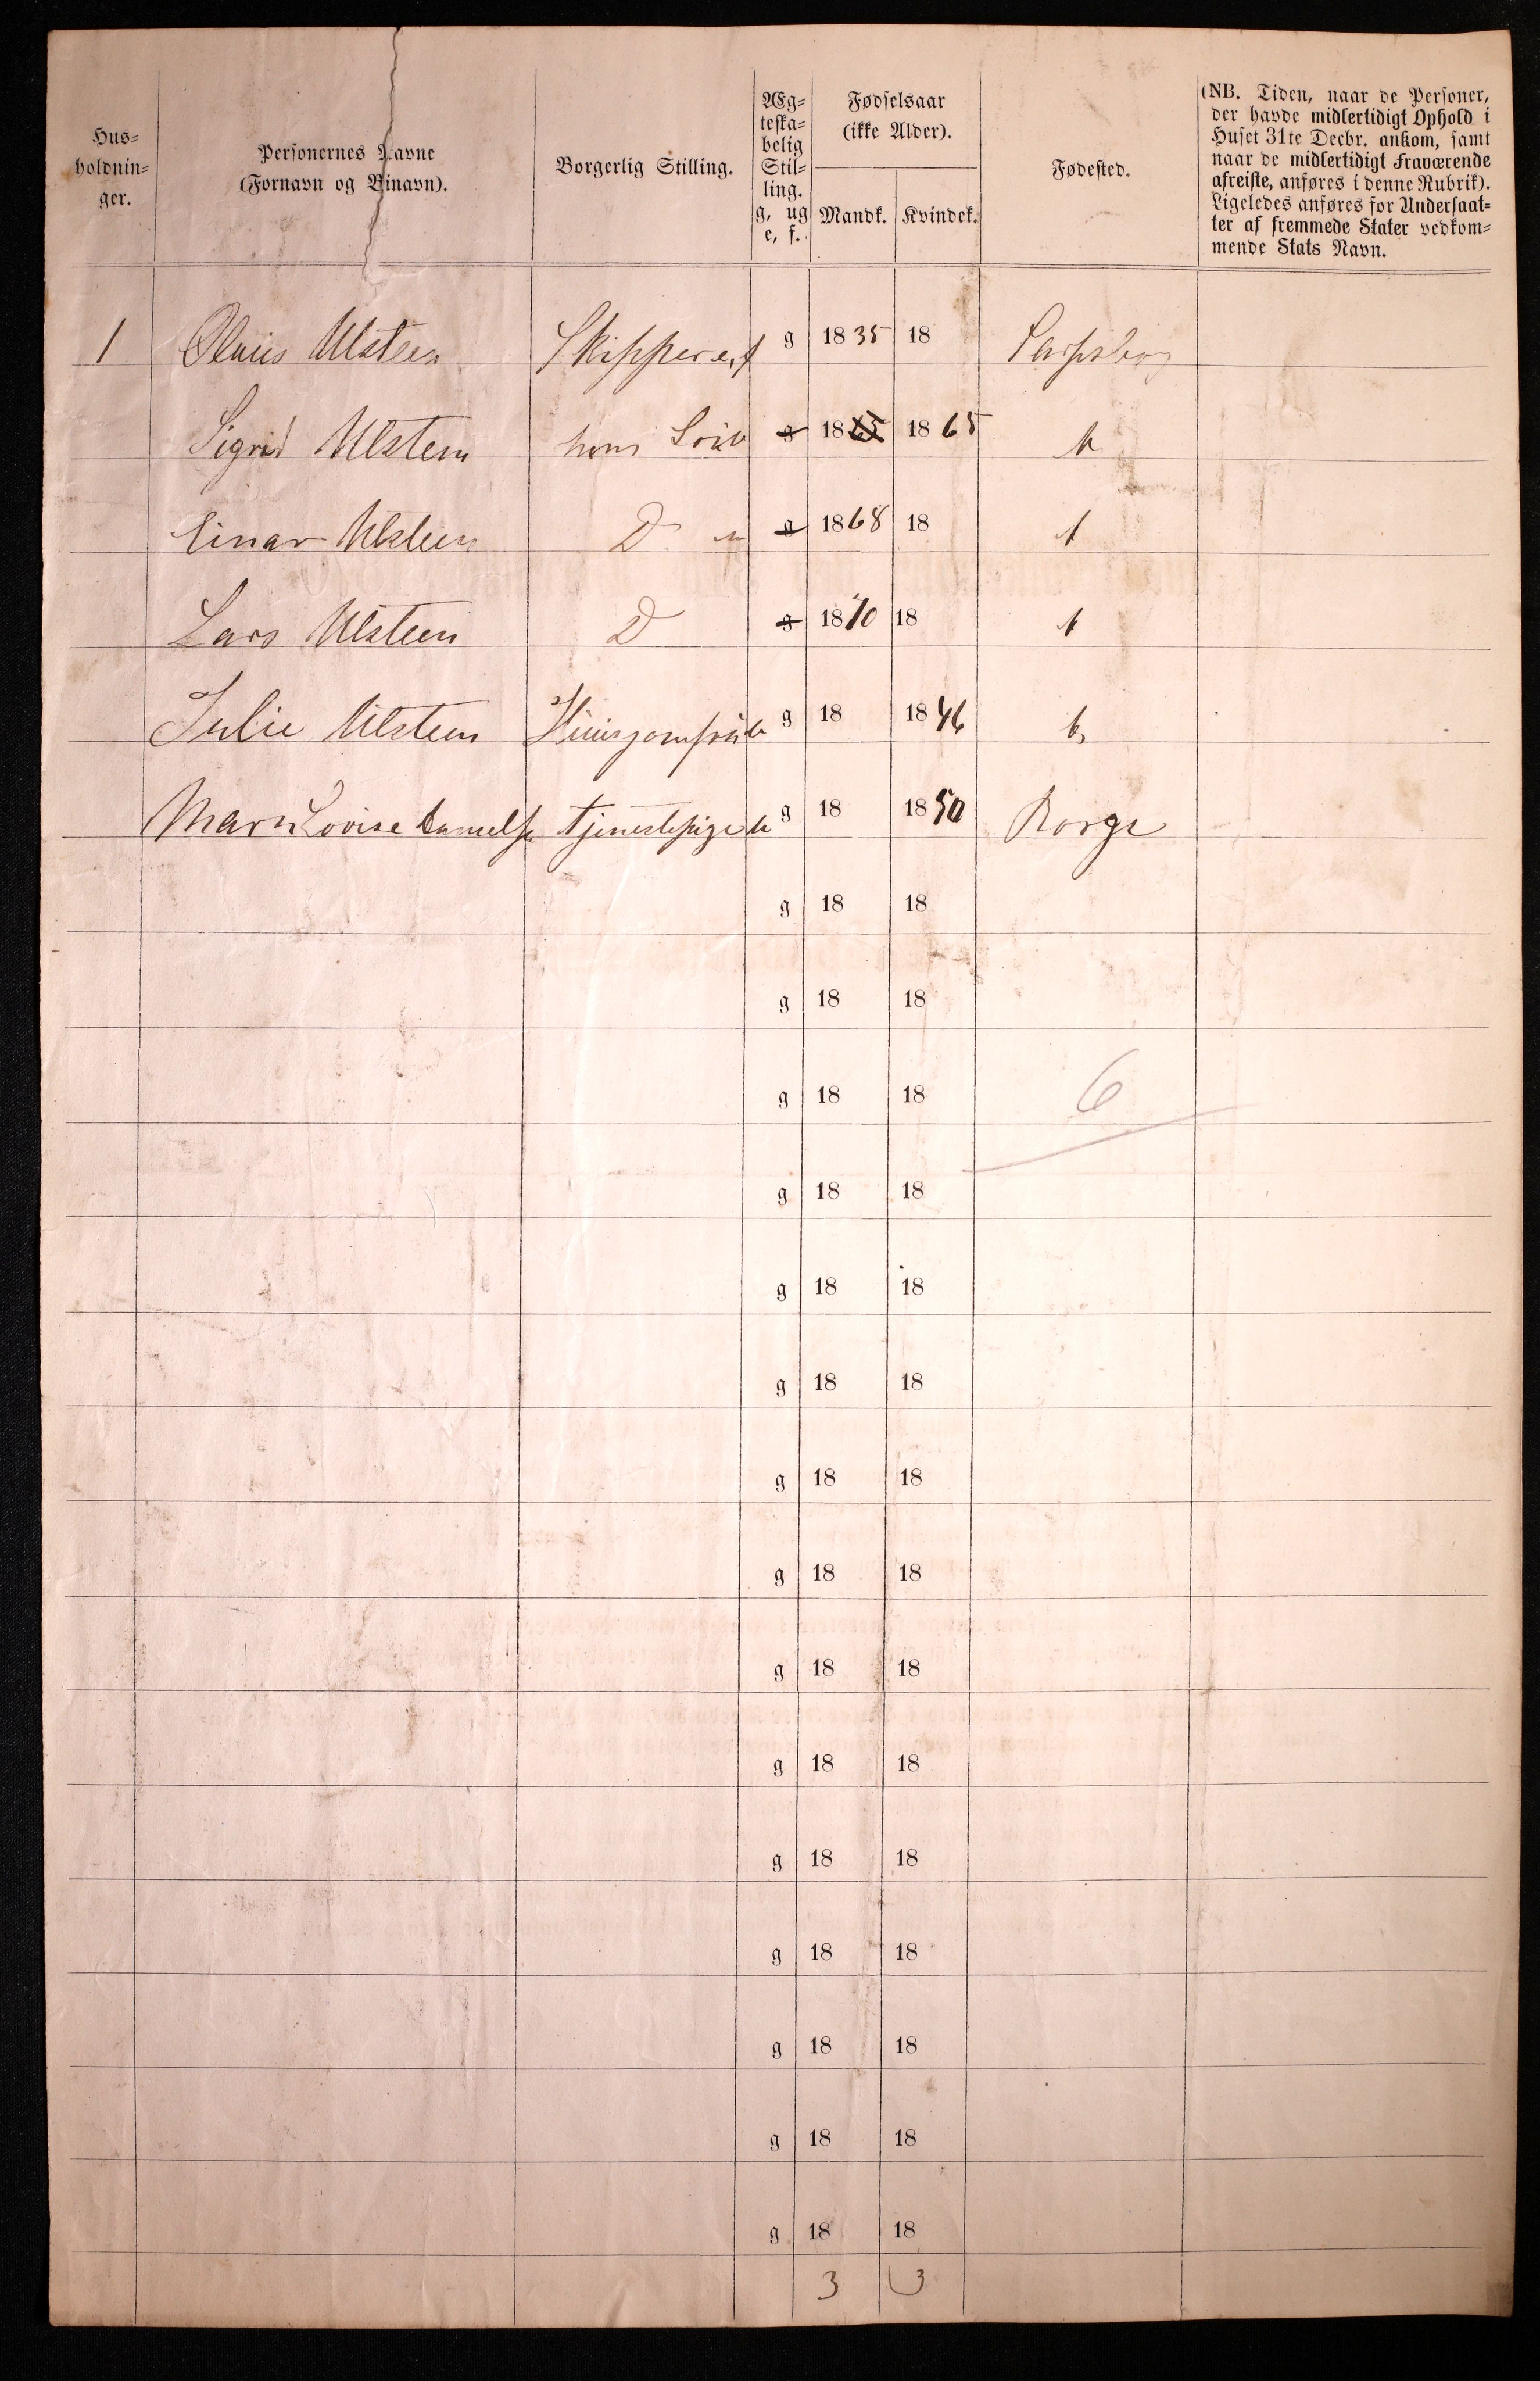 Hus=
holdnin=
ger.
Personernes Navne
(Fornavn og Binavn).
Borgerlig Stilling.
Æg=
teska=
belig
Stil=
ling.
g, ug
e, f.
Fødselsaar
(ikke Alder).
Mandk. Kvindek.
Fødested.
(NB. Tiden, naar de Personer,
der havde midlertidigt Ophold i
Huset 31te Decbr. ankom, samt
naar de midlertidigt Fraværende
afreiste, anføres i denne Rubrik).
Ligeledes anføres for Undersaat=
ter af fremmede Stater vedkom=
mende Stats Navn.
1 Olaus Ulsteen Skipper g 1835 18 Sarpsborg
Sigrid Ulsteen hans g 18 1865
Einar Ulsteen D g 1868 18
Lars Ulsteen D g 1870 18
Julie Ulsteen Huusjomfru g 18 1846
Maren Lovise tjenestepige g 18 1850 Borge
g 18 18
g 18 18
g 18 18 6
g 18 18
g 18 18
g 18 18
g 18 18
g 18 18
g 18 18
g 18 18
g 18 18
g 18 18
g 18 18
g 18 18
g 18 18
3 3